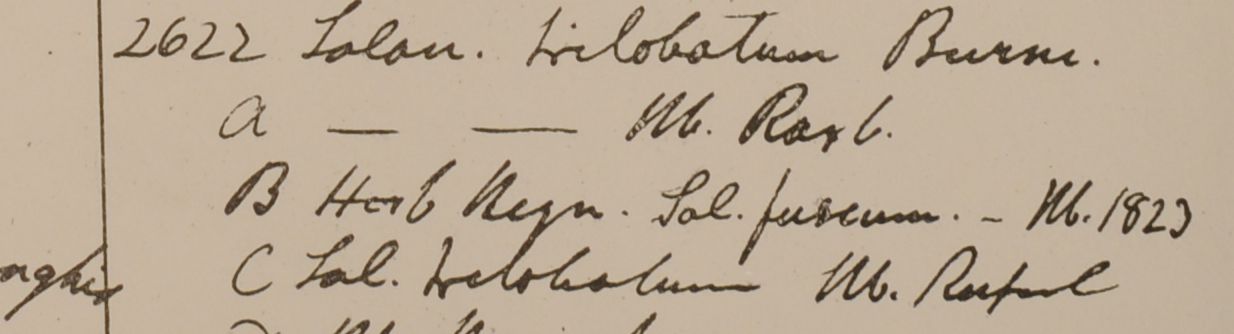 2622 Solan. trilobatum Burm.
a — — Hb. Roxb.
B Herb Heyn. Sol. fuscum. - Hb. 1823
C Sol. trilobatum Hb.